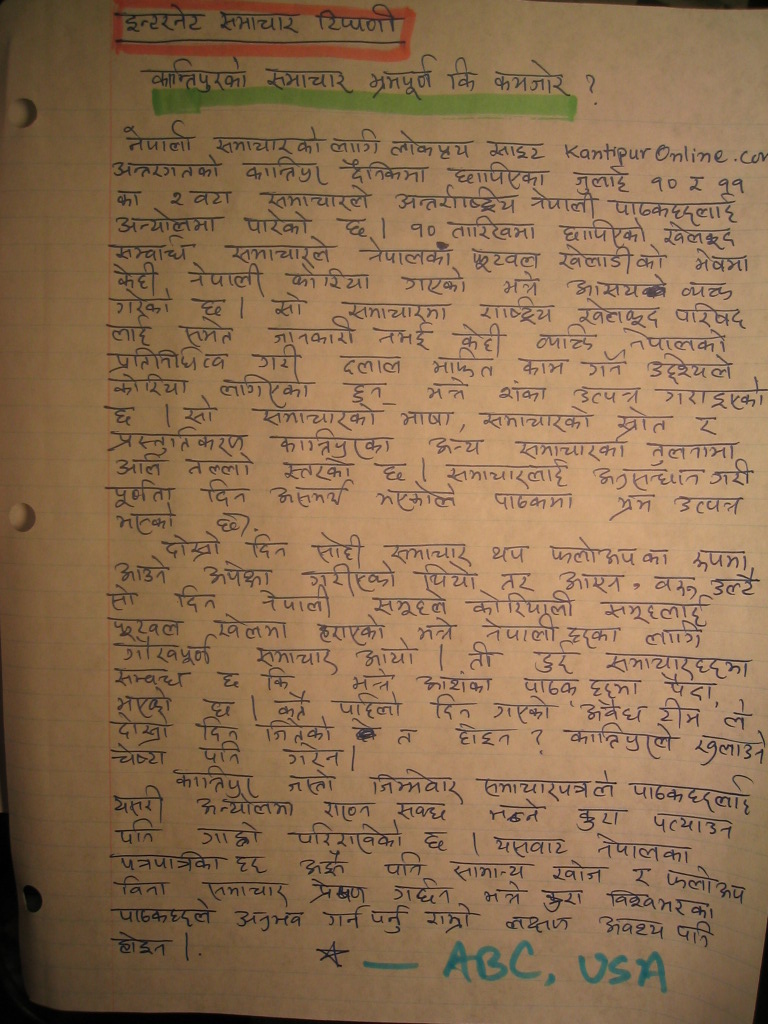 इन्टरनेट समाचार टिप्पणी
कान्तिपुरको समाचार भ्रमपूर्ण कि कमजोर ?
नेपाली समाचारको लागि लोकप्रय साइट KantipurOnline.com
अन्तरगतको कान्तिपुर दैनिकमा छापिएका जुलाई १० र ११
का २ वटा समाचारले अन्तर्राष्ट्रिय नेपाली पाठकहरुलाई
अन्योलमा पारेको छ । १० तारिखमा छापिएको खेलकूद
सम्वन्धि समाचारले नेपालको फूटवल खेलाडीको भेषमा
केही नेपाली कोरिया गएको भन्ने आसय व्यक्त
गरेको छ । सो समाचारमा राष्ट्रिय खेलकूद परिषद
लाई समेत जानकारी नभई केही व्यक्ति नेपालको
प्रतिनिधित्व गरी दलाल मार्फत काम गर्ने उद्देश्यले
कोरिया लागिएका हुन् भन्ने शंका उत्पन्न गराइएको
छ । सो समाचारको भाषा, समाचारको स्रोत र
प्रस्तुतिकरण कान्तिपुरका अन्य समाचारको तुलनामा
अलि तल्लो स्तरको छ । समाचारलाई अनुसन्धान गरी
पूर्णता दिन असमर्थ भएकोले पाठकमा भ्रम उत्पन्न
भएको छ ।
दोस्रो दिन सोही समाचार थप फलोअपका रुपमा
आउने अपेक्षा गरीएको थियो तर आएन, वरु उल्टै
सो दिन नेपाली समूहले कोरियाली समूहलाई
फूटवल खेलमा हराएको भन्ने नेपालीहरुका लागि
गौरवपूर्ण समाचार आयो । ती दुई समाचारहरुमा
सम्वन्ध छ कि भन्ने आशंका पाठकहरुमा पैदा
भएको छ । कतै पहिलो दिन गएको 'अवैध टीम' ले
दोस्रो दिन जितेको त होइन ? कान्तिपुरले खुलाउने
चेष्टा पनि गरेन ।
कान्तिपुर जस्तो जिम्मेवार समाचारपत्रले पाठकहरुलाई
यसरी अन्योलमा राख्न सक्छ भन्ने कुरा पत्याउन
पनि गाह्रो परिराखेको छ । यसवाट नेपालका
पत्रपत्रिका हरु अझै पनि सामान्य खोज र फलोअप
विना समाचार प्रेषण गर्छन भन्ने कुरा विश्वभरका
पाठकहरुले अनुभव गर्न पर्नु राम्रो लक्षण अवश्य पनि
होइन ।
— ABC, USA